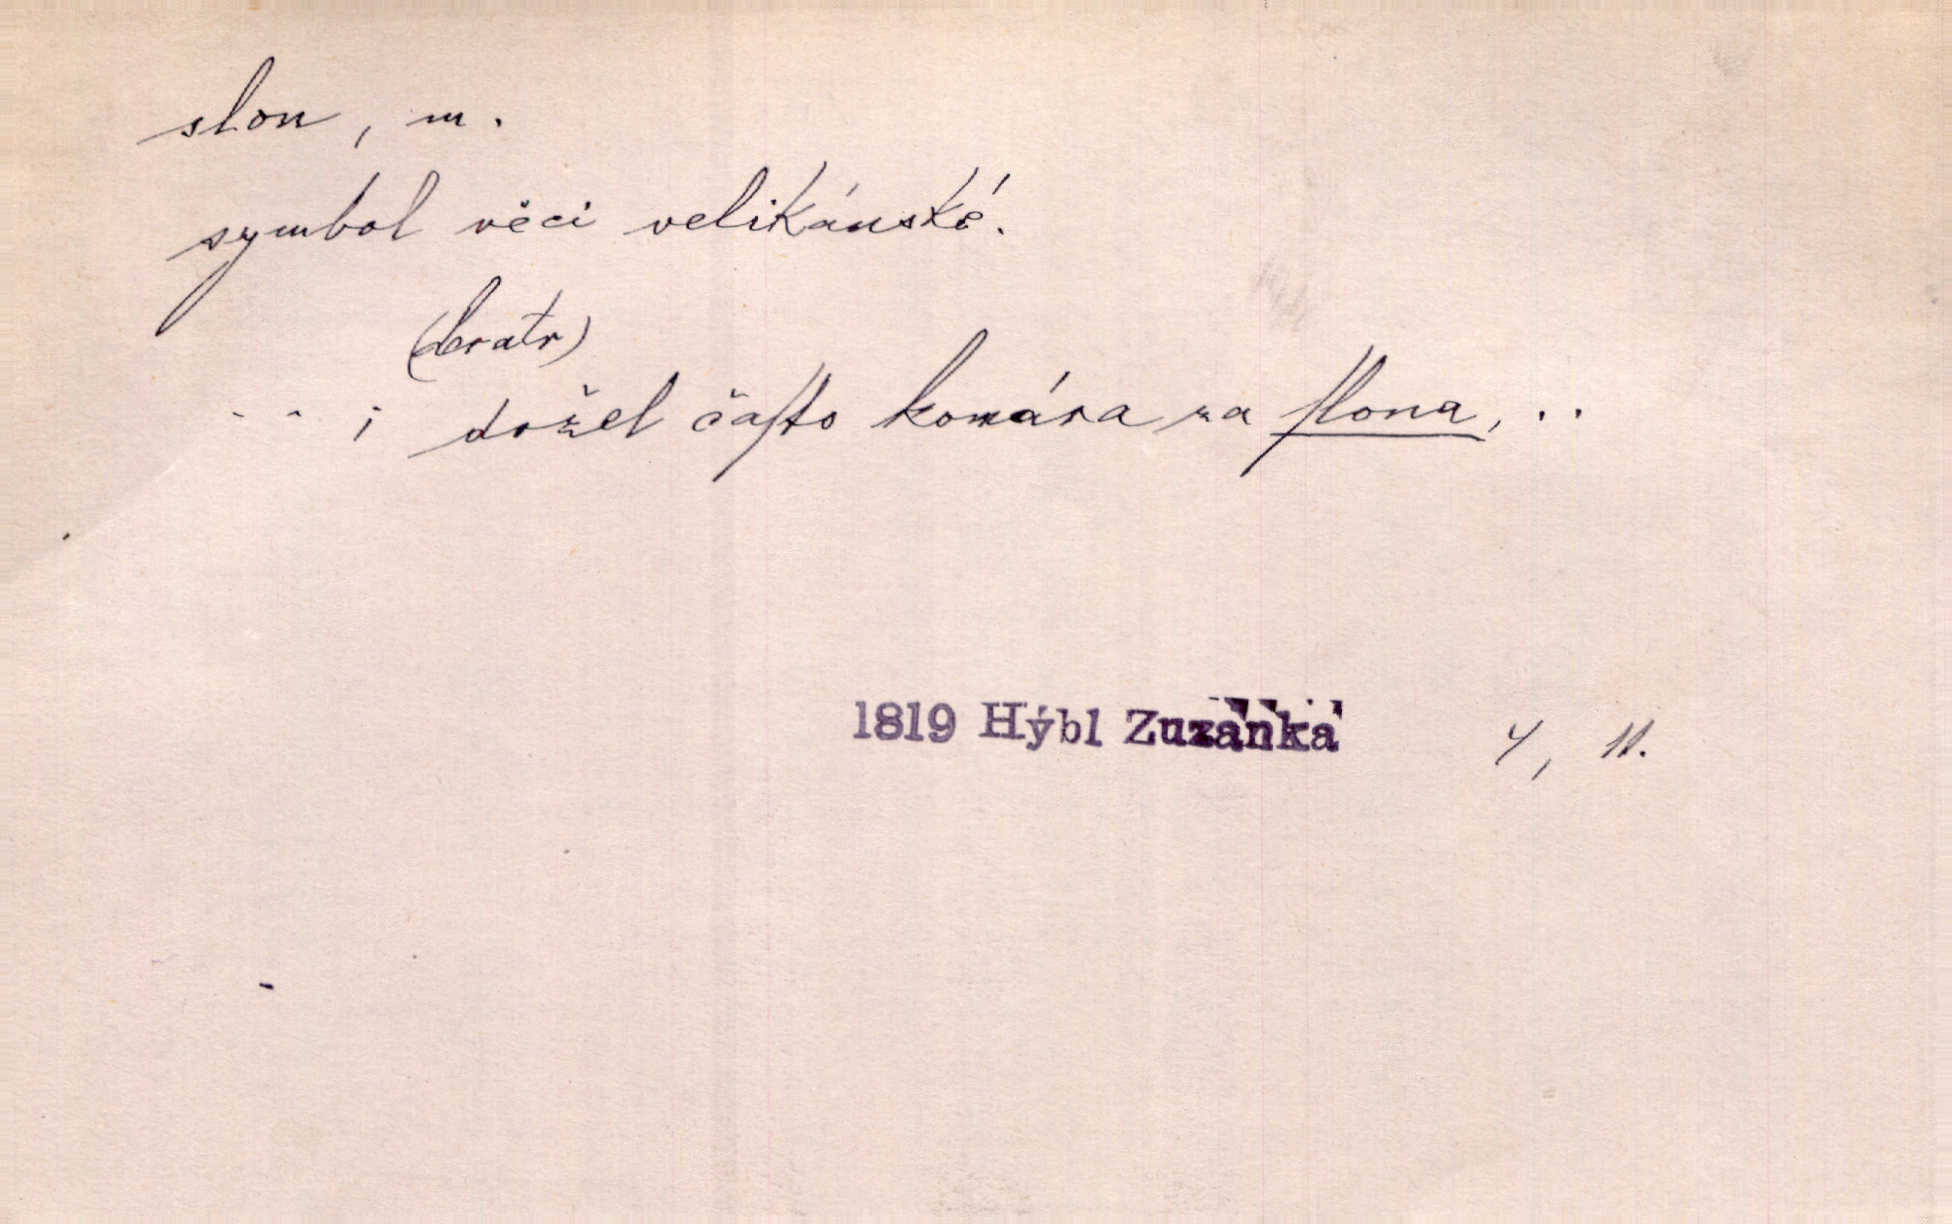 slon, m.
symbol věci velikánské.
(bratr)
.. i držel čaſto komára za ſlona, ..
1819 Hýbl Zuzanka 4, 11.